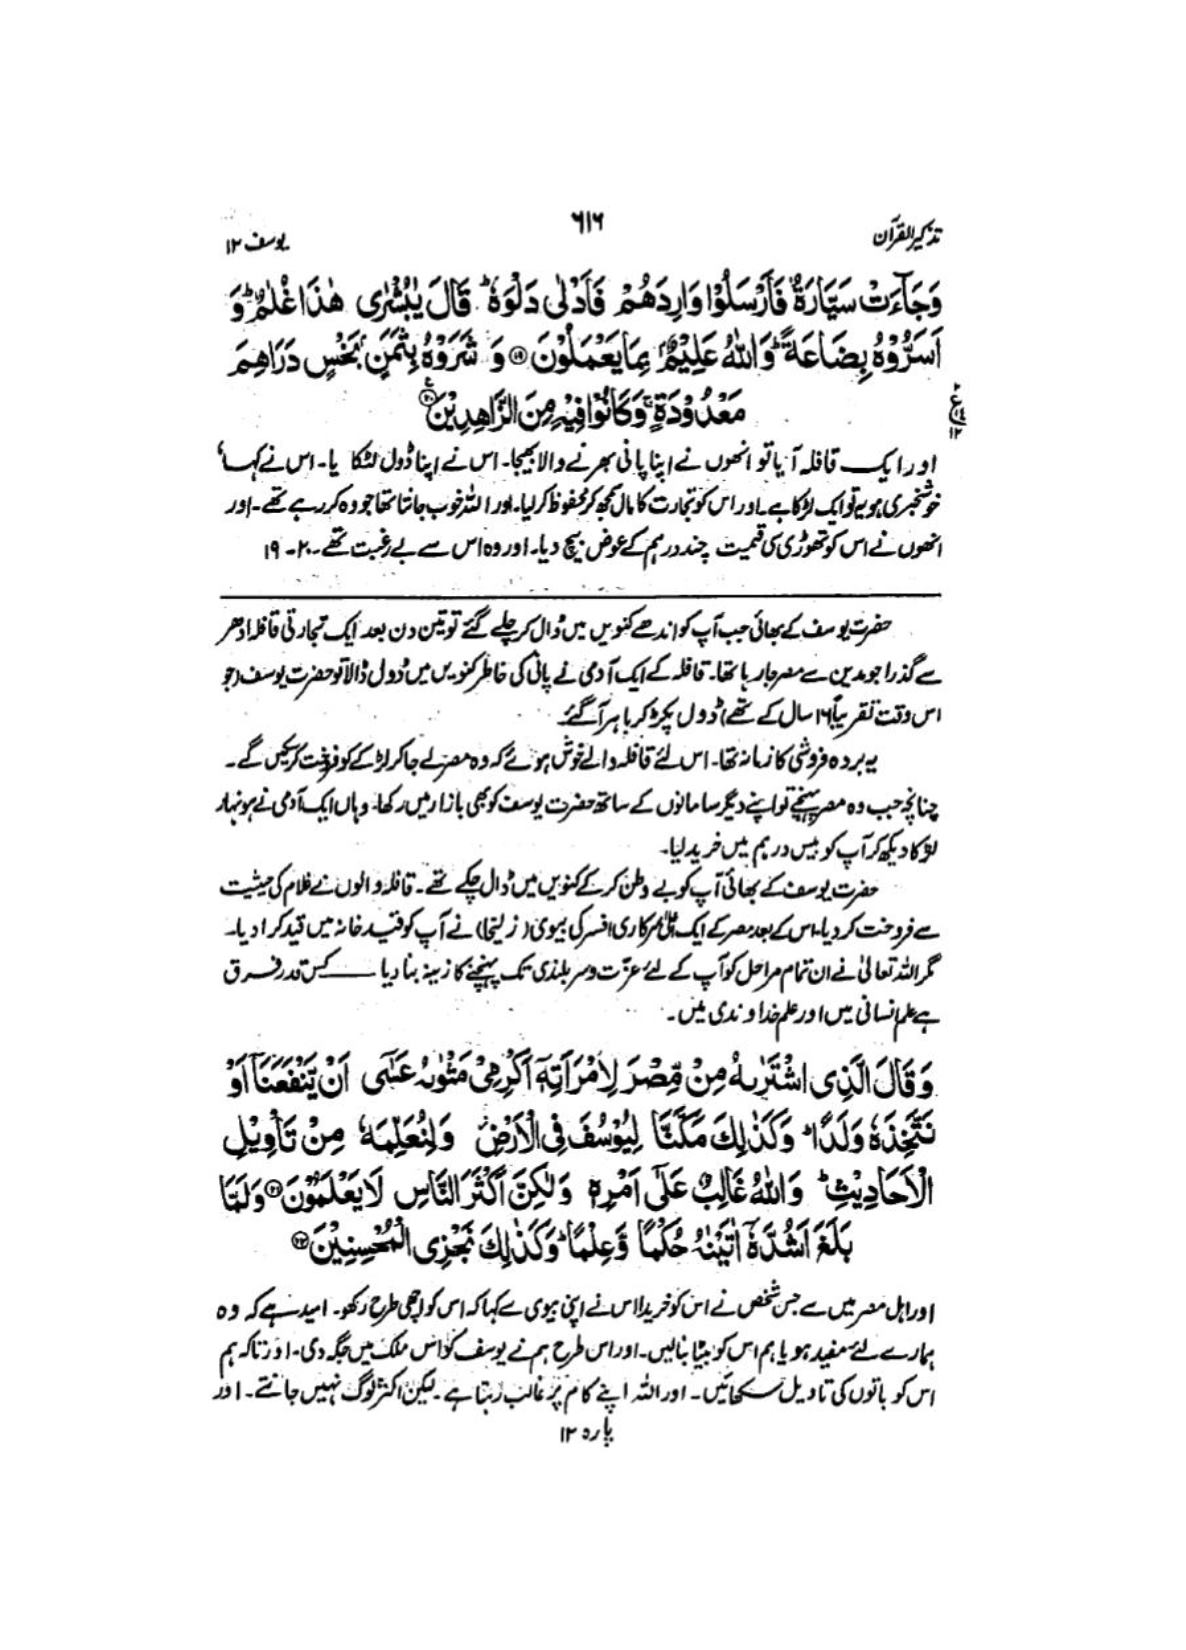 تذکیر القرآن
۶۱۶
یوسف ۱۲
وَجَآءَتْ سَيَّارَةٌ فَاَرْسَلُوْا وَارِدَهُمْ فَاَدْلٰى دَلْوَهٗ ؕ قَالَ يٰبُشْرٰى هٰذَا غُلٰمٌ ؕ وَ
اَسَرُّوْهُ بِضَاعَةً ؕ وَاللّٰهُ عَلِيْمٌۢ بِمَا يَعْمَلُوْنَ ۝۱۹ وَ شَرَوْهُ بِثَمَنٍۭ بَخْسٍ دَرَاهِمَ
مَعْدُوْدَةٍ ۚ وَكَانُوْا فِيْهِ مِنَ الزَّاهِدِيْنَ ۝۲۰
اور ایک قافلہ آیا تو انھوں نے اپنا پانی بھرنے والا بھیجا۔ اس نے اپنا ڈول لٹکا یا۔ اس نے کہا،
خوشخبری ہو یہ تو ایک لڑکا ہے۔ اور اس کو تجارت کا مال سمجھ کر محفوظ کر لیا۔ اور اللہ خوب جانتا تھا جو وہ کر رہے تھے۔ اور
انھوں نے اس کو تھوڑی سی قیمت چند درہم کے عوض بیچ دیا۔ اور وہ اس سے بے رغبت تھے۔ ۲۰-۱۹
حضرت یوسف کے بھائی جب آپ کو اندھے کنویں میں ڈال کر چلے گئے تو تین دن بعد ایک تجارتی قافلہ ادھر
سے گذرا جو مدین سے مصر جا رہا تھا۔ قافلہ کے ایک آدمی نے پانی کی خاطر کنویں میں ڈول ڈالا تو حضرت یوسف (جو
اس وقت تقریباً ۱۶ سال کے تھے) ڈول پکڑ کر باہر آگئے۔
یہ بردہ فروشی کا زمانہ تھا۔ اس لئے قافلہ والے خوش ہوئے کہ وہ مصر لے جا کر لڑکے کو فروخت کر سکیں گے۔
چنانچہ جب وہ مصر پہنچے تو اپنے دیگر سامانوں کے ساتھ حضرت یوسف کو بھی بازار میں رکھا۔ وہاں ایک آدمی نے ہونہار
لڑکا دیکھ کر آپ کو بیس درہم میں خرید لیا۔
حضرت یوسف کے بھائی آپ کو بے وطن کر کے کنویں میں ڈال چکے تھے۔ قافلہ والوں نے غلام کی حیثیت
سے فروخت کر دیا۔ اس کے بعد مصر کے ایک اعلیٰ سرکاری افسر کی بیوی (زلیخا) نے آپ کو قید خانہ میں قید کرا دیا۔
مگر اللہ تعالیٰ نے ان تمام مراحل کو آپ کے لئے عزت و سر بلندی تک پہنچنے کا زینہ بنا دیا ــــ کس قدر فرق
ہے علم انسانی میں اور علم خداوندی میں۔
وَقَالَ الَّذِى اشْتَرٰىهُ مِنْ مِّصْرَ لِامْرَاَتِهٖۤ اَكْرِمِىْ مَثْوٰىهُ عَسٰۤى اَنْ يَّنْفَعَنَاۤ اَوْ
نَتَّخِذَهٗ وَلَدًا ؕ وَكَذٰلِكَ مَكَّنَّا لِيُوْسُفَ فِى الْاَرْضِ وَلِنُعَلِّمَهٗ مِنْ تَاْوِيْلِ
الْاَحَادِيْثِ ؕ وَاللّٰهُ غَالِبٌ عَلٰٓى اَمْرِهٖ وَلٰكِنَّ اَكْثَرَ النَّاسِ لَا يَعْلَمُوْنَ ۝۲۱ وَلَمَّا
بَلَغَ اَشُدَّهٗۤ اٰتَيْنٰهُ حُكْمًا وَّعِلْمًا ؕ وَكَذٰلِكَ نَجْزِى الْمُحْسِنِيْنَ ۝۲۲
اور اہل مصر میں سے جس شخص نے اس کو خریدا اس نے اپنی بیوی سے کہا کہ اس کو اچھی طرح رکھو۔ امید ہے کہ وہ
ہمارے لئے مفید ہو یا ہم اس کو بیٹا بنا لیں۔ اور اس طرح ہم نے یوسف کو اس ملک میں جگہ دی۔ اور تاکہ ہم
اس کو باتوں کی تاویل سکھائیں۔ اور اللہ اپنے کام پر غالب رہتا ہے۔ لیکن اکثر لوگ نہیں جانتے۔ اور
پارہ ۱۲